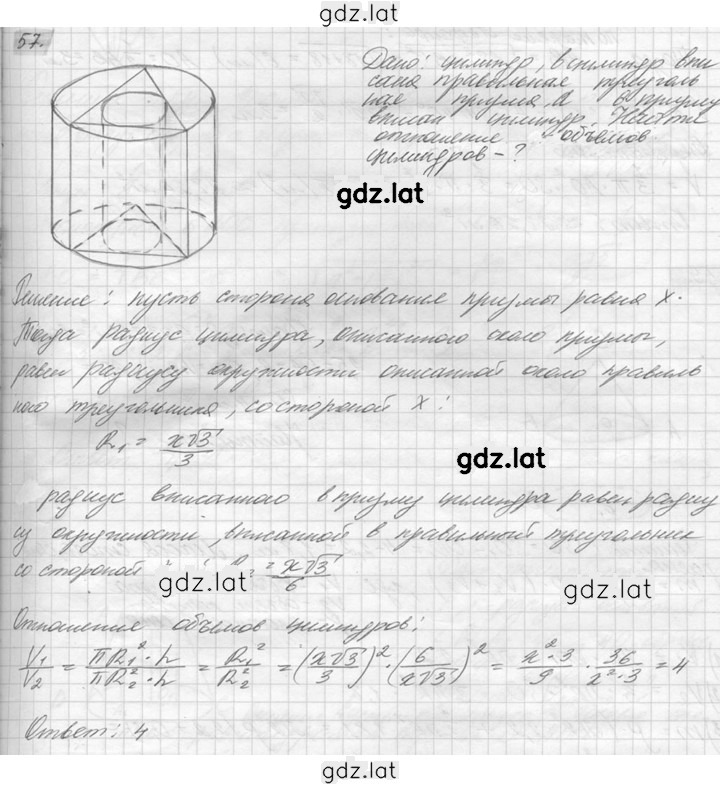 gdz.lat
57.
Дано: цилиндр, в цилиндр впи
сана правильная треуголь
ная призма, а в призму
вписан цилиндр. Найти
отношение объемов
цилиндров - ?
gdz.lat
Решение: пусть сторона основание призмы равна x.
Тогда радиус цилиндра, описанного около призмы,
равен радиусу окружности описанной около правиль
ного треугольника, со стороной x:
R₁ = x√3/3
gdz.lat
радиус вписанного в призму цилиндра равен радиу
су окружности, вписанной в правильный треугольник
со стороной = x√3/6
gdz.lat
gdz.lat
Отношение объемов цилиндров:
V₁/V₂ = πR₁²·h/πR₂²·h = R₁²/R₂² = (x√3/3)²·(6/x√3)² = x²·3/9 · 36/x²·3 = 4
Ответ: 4
gdz.lat